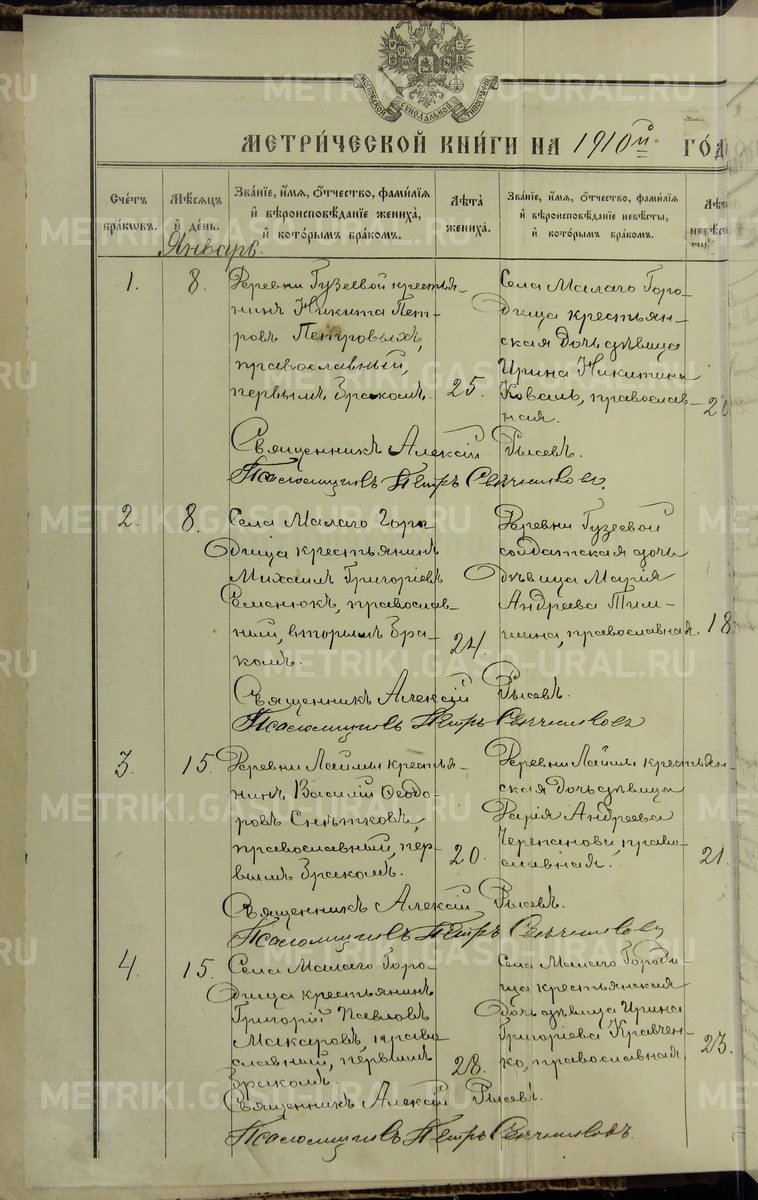 МОСКОВСКОЙ СѴНОДАЛЬНОЙ ТИПОГРАФІИ
МЕТРИ́ЧЕСКОЙ КНИ́ГИ НА 1910й ГО́Д
Сче́тъ бра́кѡвъ.
Мѣ́сяцъ и де́нь.
Зва́нїе, и́мя, ѻ́тчество, фами́лїя
и вѣроисповѣ́данїе жениха̀,
и кото́рымъ бра́комъ.
Лѣ́та жениха̀.
Зва́нїе, и́мя, ѻ́тчество, фами́лїя
и вѣроисповѣ́данїе невѣ́сты,
и кото́рымъ бра́комъ.
Январь.
1.
8.
Деревни Гузеевой крестья-
нинъ Никита Пет-
ровъ Петровыхъ,
православный,
первымъ бракомъ.
25.
Села Малаго Горо-
дища крестьян-
ская дочь дѣвица
Ирина Никитина
Коваль, православ-
ная.
Священникъ Алексій Рысевъ.
Псаломщикъ Петръ
2.
8.
Села Малаго Горо-
дища крестьянинъ
Михаилъ Григоріевъ
Семенюкъ, православ-
ный, вторымъ бра-
комъ.
24.
Деревни Гузеевой
солдатская дочь
дѣвица Марія
Андреева Тим-
шина, православная.
18
Священникъ Алексій Рысевъ.
Псаломщикъ Петръ
3.
15.
Деревни Лаймы крестья-
нинъ Василій Ѳеодо-
ровъ Снѣтковъ,
православный, пер-
вымъ бракомъ.
20.
Деревни Лаймы крестьян-
ская дочь дѣвица
Дарія Андреева
Черепанова, право-
славная.
21.
Священникъ Алексій Рысевъ.
Псаломщикъ Петръ
4.
15.
Села Малаго Горо-
дища крестьянинъ
Григорій Павловъ
Макаровъ, право-
славный, первымъ
бракомъ.
28.
Села Малаго Городи-
ща крестьянская
дочь дѣвица Ирина
Григоріева Кравчен-
ко, православная.
23.
Священникъ Алексій Рысевъ.
Псаломщикъ Петръ
METRIKI.GASO-URAL.RU